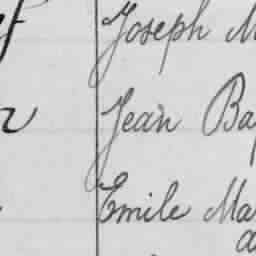 Joseph M
Jean Bap
Emile Ma